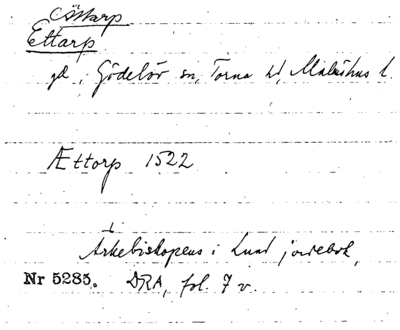 Östtarp
Ettarp
gd, Gödelöv sn, Torna hd, Malmöhus l.
Ættorp 1522
Ärkebiskopens i Lund jordebok,
Nr 5283. DRA, fol. 7 v.